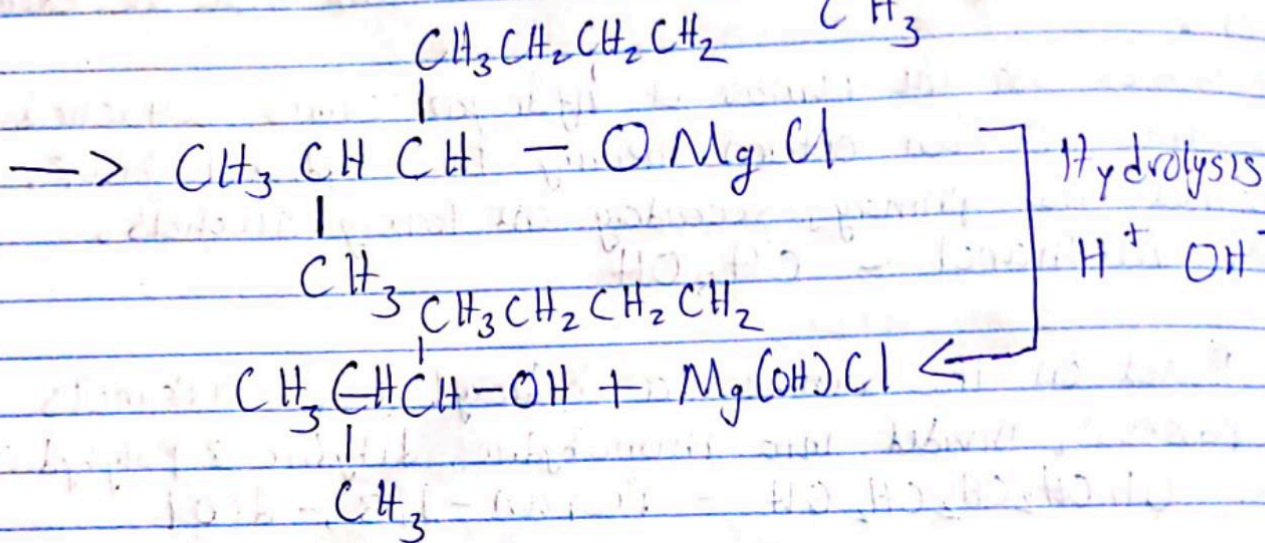 CH₃
CH₃CH₂CH₂CH₂
|
—> CH₃ CH CH – O Mg Cl Hydrolysis
|
CH₃ H⁺ OH⁻
CH₃CH₂CH₂CH₂
|
CH₃CHCH–OH + Mg(OH)Cl <
|
CH₃